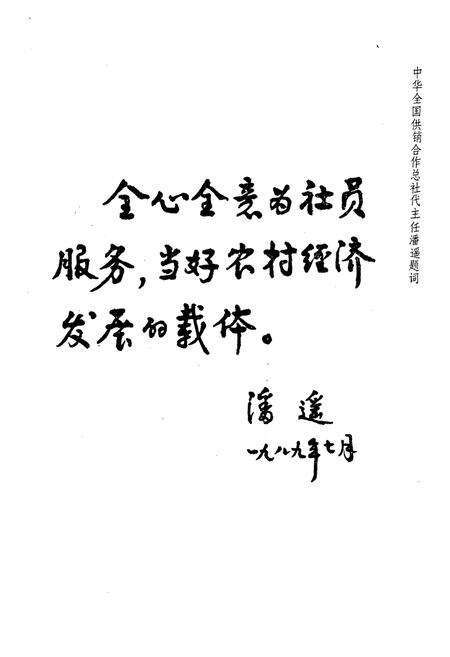 全心全意为社员
服务,当好农村经济
发展的载体。
潘遥
一九八九年七月
中华全国供销合作总社代主任潘遥题词